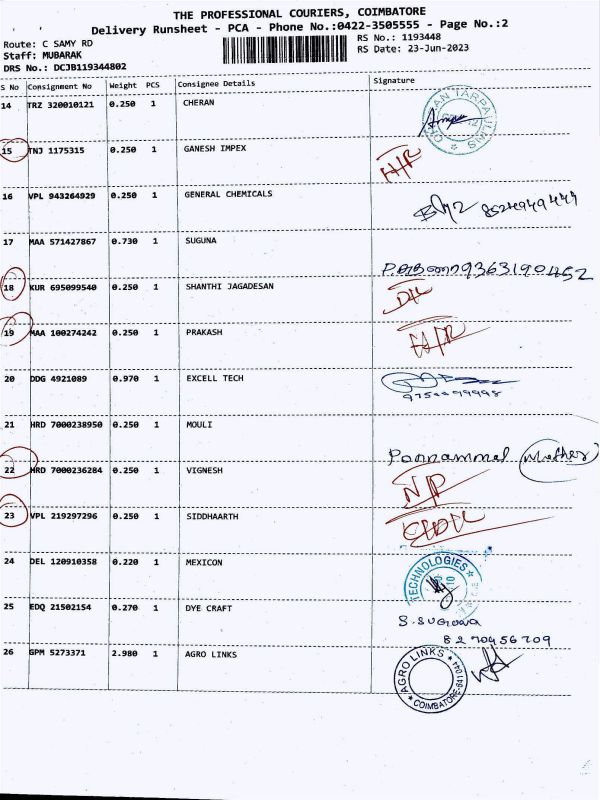 THE PROFESSIONAL COURIERS, COIMBATORE
Delivery Runsheet - PCA - Phone No.:0422-3505555 - Page No.:2
Route: C SAMY RD
Staff: MUBARAK
DRS No.: DCJB119344802
RS No.: 1193448
RS Date: 23-Jun-2023
S No Consignment No Weight PCS Consignee Details Signature
14 TRZ 320010121 0.250 1 CHERAN
15 TNJ 1175315 0.250 1 GANESH IMPEX
16 VPL 943264929 0.250 1 GENERAL CHEMICALS
17 MAA 571427867 0.730 1 SUGUNA
18 KUR 695099540 0.250 1 SHANTHI JAGADESAN
19 MAA 100274242 0.250 1 PRAKASH
20 DDG 4921089 0.970 1 EXCELL TECH
21 HRD 7000238950 0.250 1 MOULI
Ponnammal (Mother)
22 HRD 7000236284 0.250 1 VIGNESH
N/P
23 VPL 219297296 0.250 1 SIDDHAARTH
24 DEL 120910358 0.220 1 MEXICON
TECHNOLOGIES
25 EDQ 21502154 0.270 1 DYE CRAFT
S. Suguna
8270456709
26 GPM 5273371 2.980 1 AGRO LINKS
AGRO LINKS
COIMBATORE-641 044